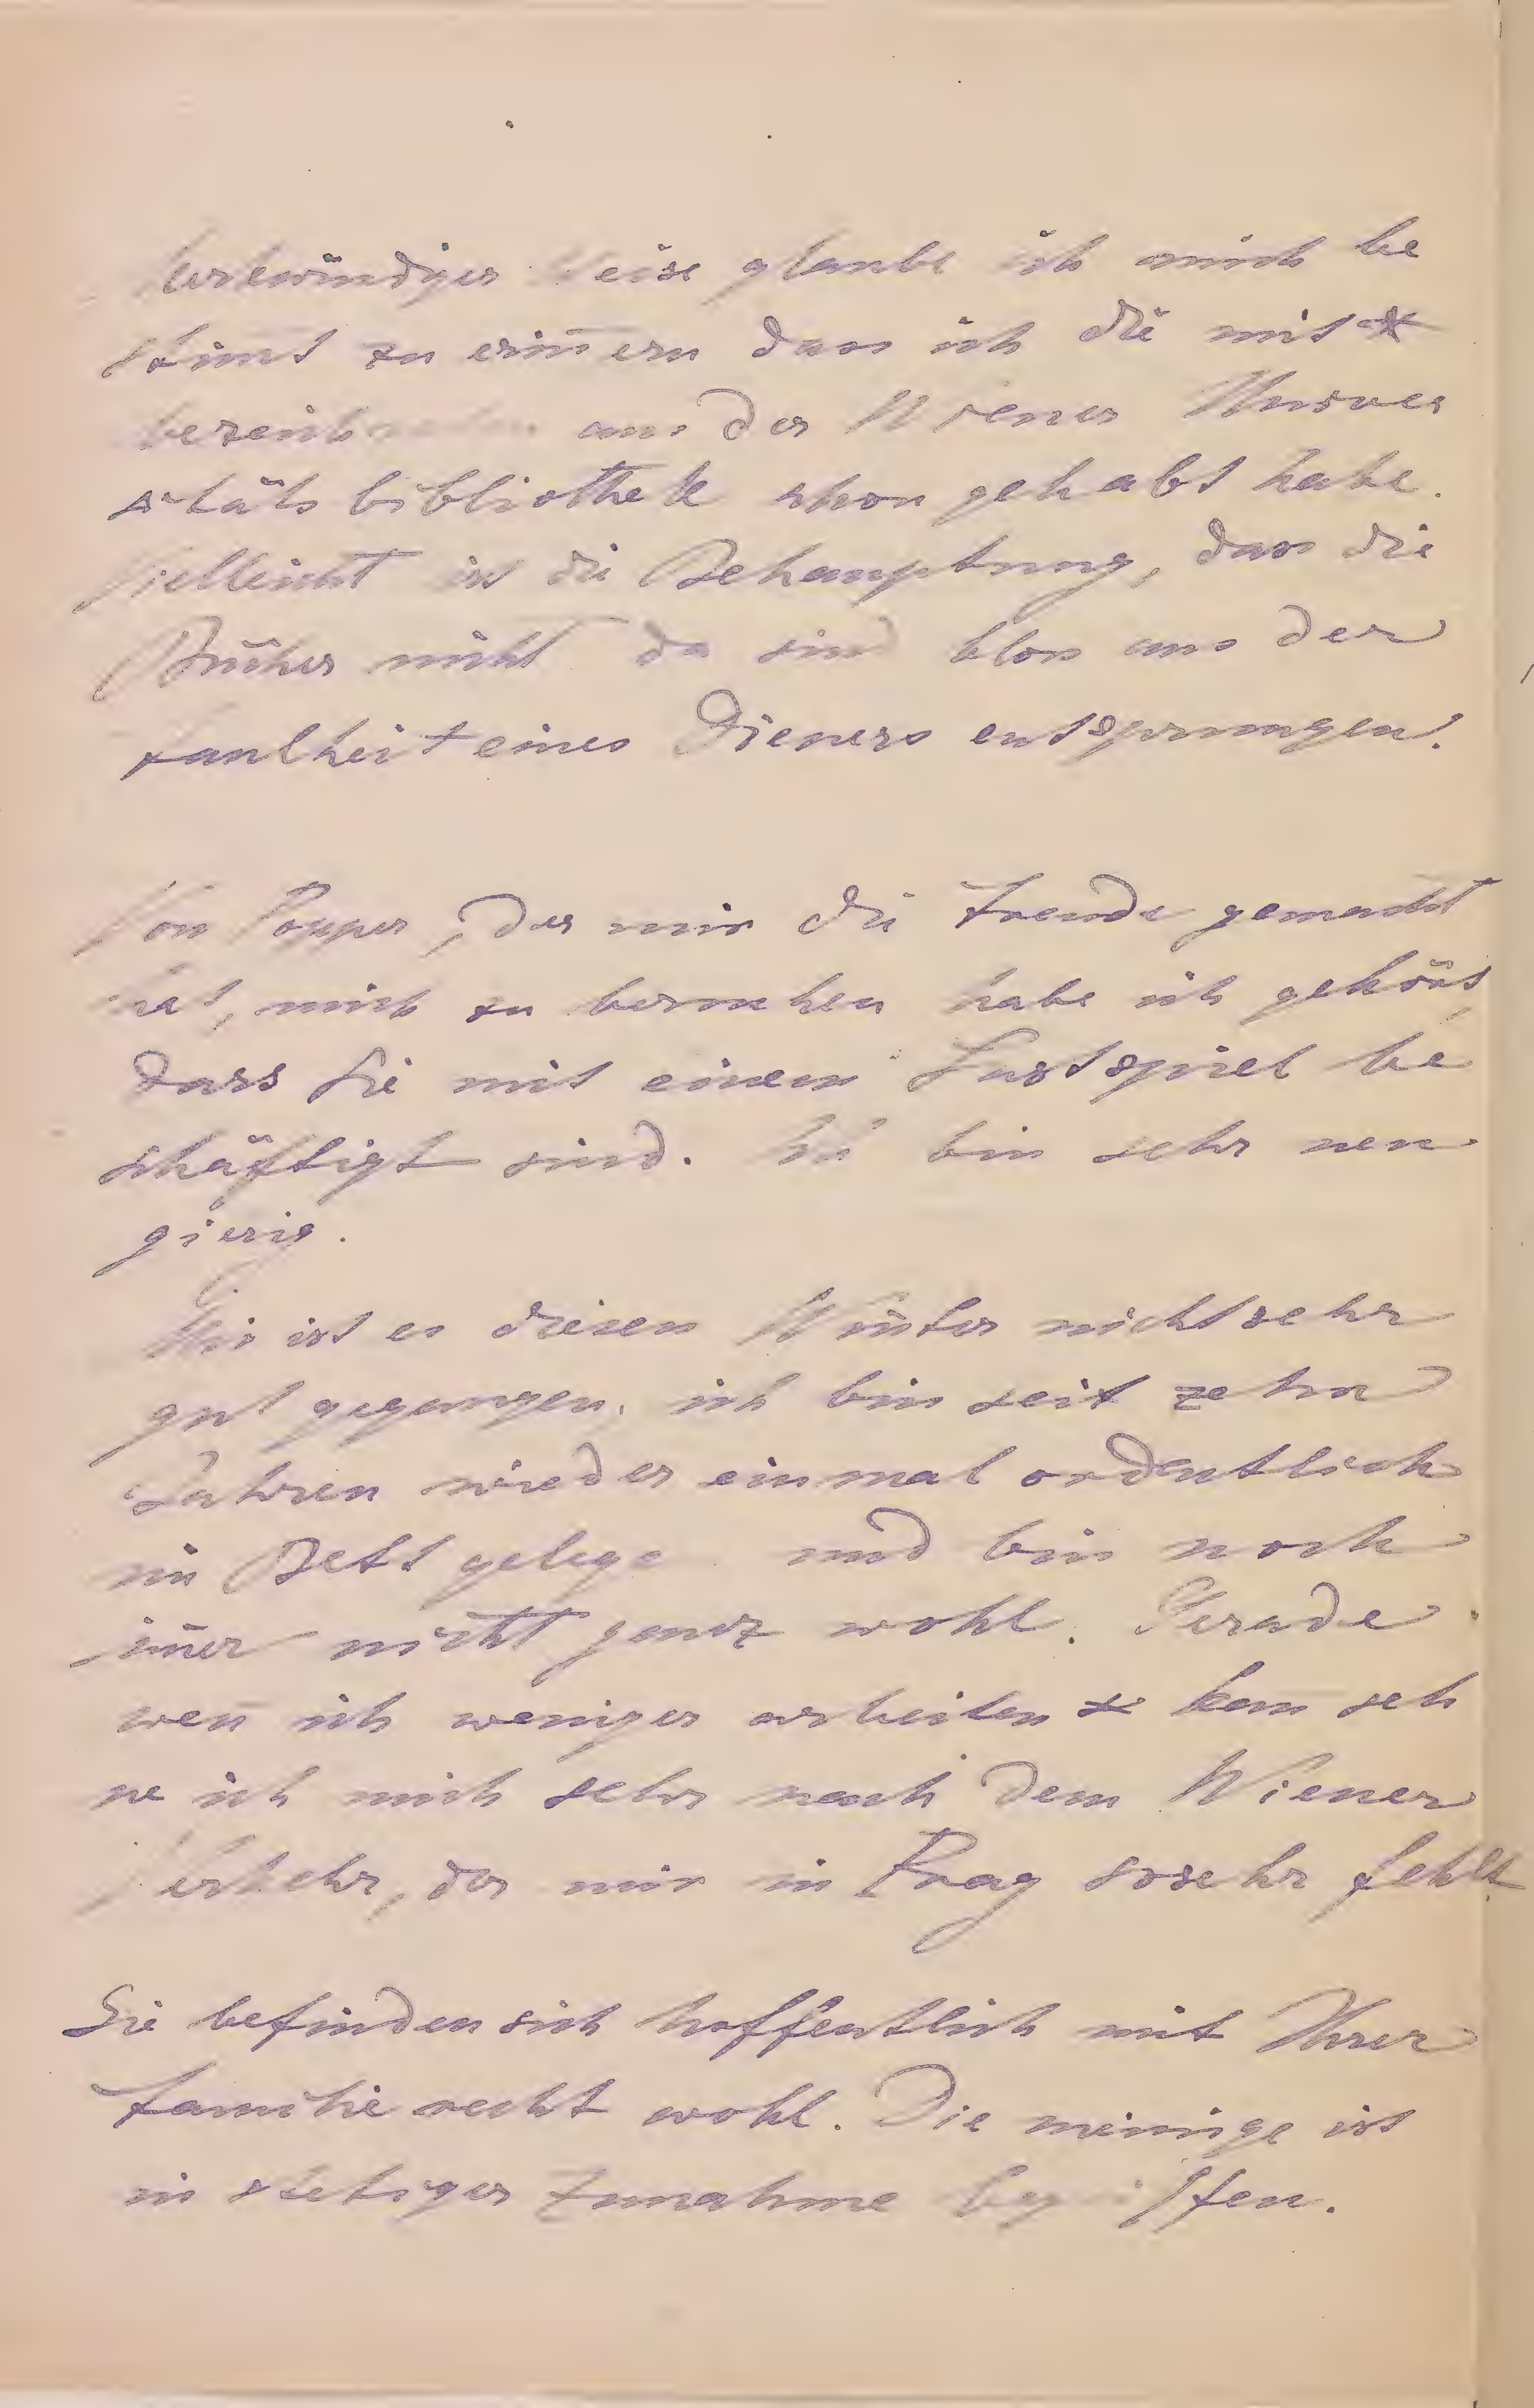 Merkwürdiger Weise glaube ich mich be
stim̄t zu erin̄ern dass ich die mit *
bezeichneten aus der Wiener Univer
sitäts bibliothek schon gehabt habe.
Vielleicht ist die Behauptung, dass die
Bücher nicht da sind bloss aus der
Faulheit eines Dieners entsprungen.
Von Popper, der mir die Freude gemacht
hat, mich zu besuchen habe ich gehört,
dass Sie mit einem Lustspiel be
schäftigt sind. Ich bin sehr neu
gierig.
Mir ist es diesen Winter nicht sehr
gut gegangen. ich bin seit zehn
Jahren wieder einmal ordentlich
im Bett gelegen und bin noch
im̄er nicht ganz wohl. Gerade
wen̄ ich weniger arbeiten kan̄ seh
ne ich mich sehr nach dem Wiener
Verkehr, der mir in Prag so sehr fehlt
Sie befinden sich hoffentlich mit Ihrer
Familie recht wohl. Die meinige ist
in stetiger Zunahme begriffen.